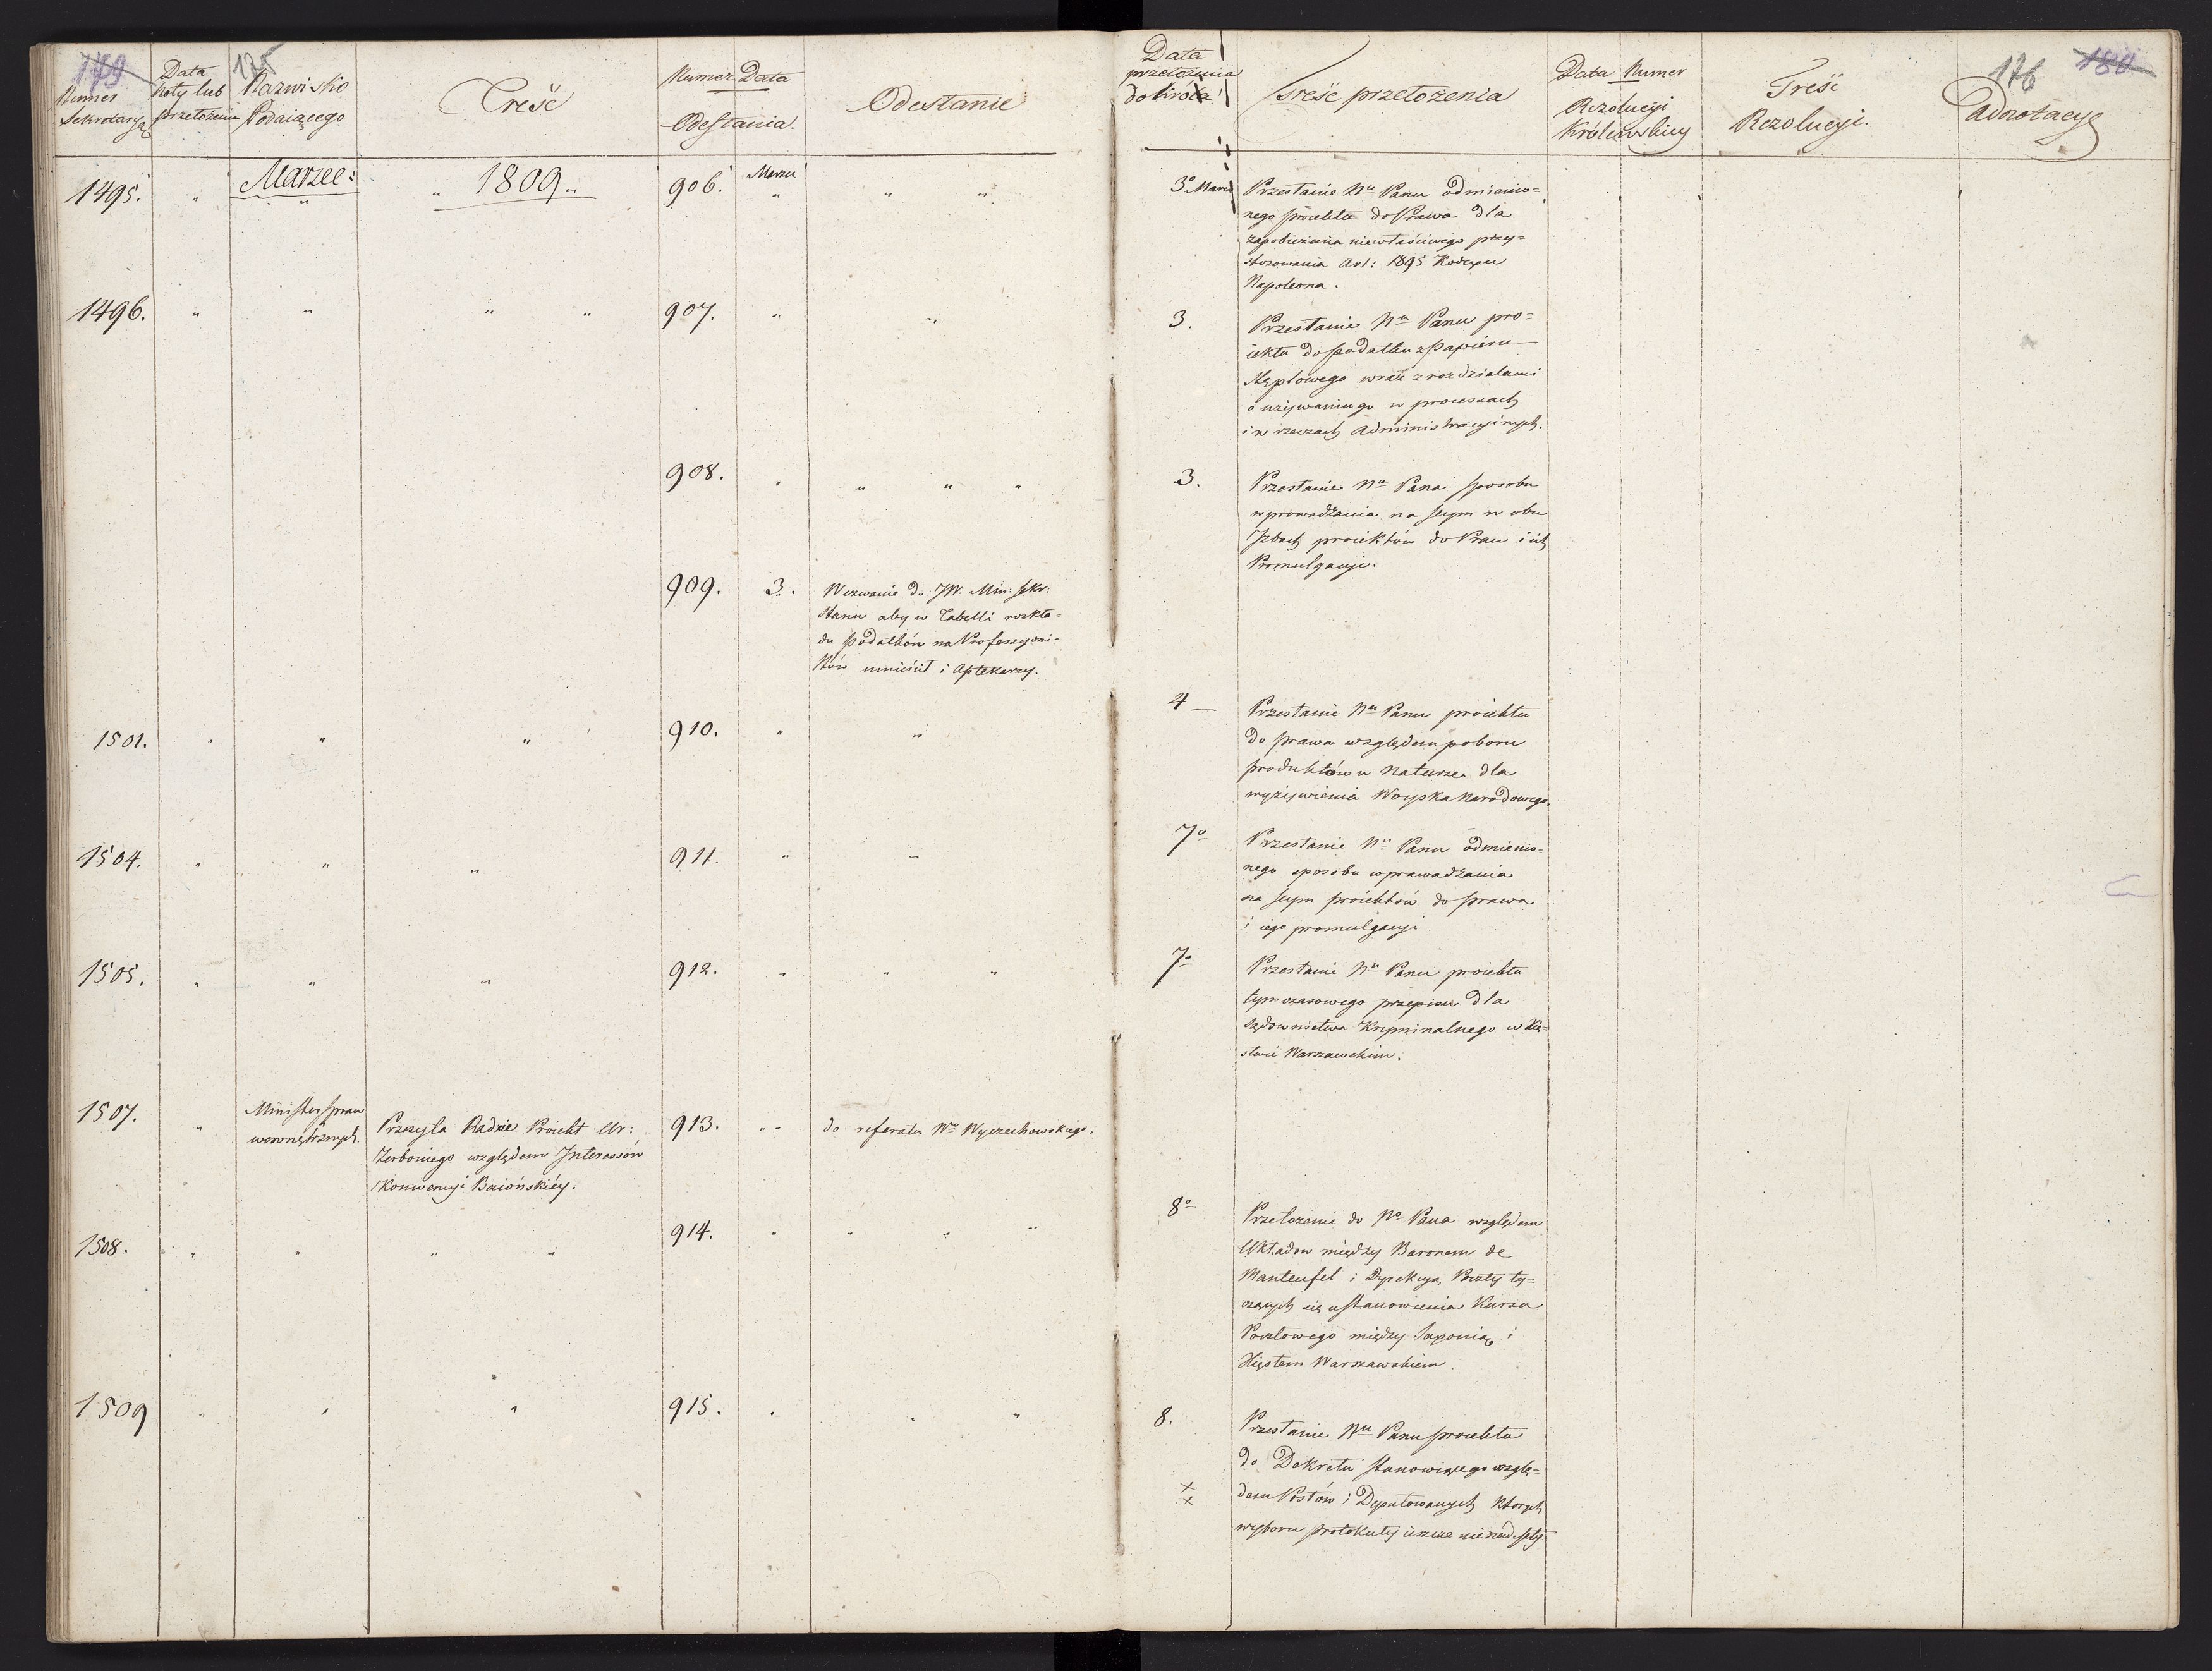 179 175
Numer Sekretaryą
Data Noty lub przełożenia
Nazwisko Podaiącego
Treść
Numer Data
Odesłania.
Odesłanie
Marzec: „ 1809 „
1495. „ „ 906. Marca „ „ „
1496. „ „ „ „ 907. „ „
908. „ „ „ „
909. 3. Wezwanie do JW. Min: Sekr:
Stanu aby w Tabelli rozkła=
du podatków na Professyoni-
stów umieścił i Aptekarzy.
1501. „ „ „ 910. „ „
1504. „ „ „ 911. „ „
1505. „ „ „ 912. „ „ „
1507. „ Minister Spraw
wewnętrznych.
Przesyła Radzie Proiekt Ur:
Zerboniego względem Interessów
Konwencyi Baiońskiéy.
913. „ „ do referatu Wo Wyczechowskiego.
1508. „ „ „ „ 914. „ „ „ „
1509 „ „ „ 915. „ „ „
176 180
Data
przełożenia
do Króla
Treść przełożenia
Data Numer
Rezolucyi
Królewskiey
Treść
Rezolucyi.
Adnotacye
3o Marca Przesłanie Nu Panu odmienio=
nego proiektu do Prawa dla
zapobieżenia niewłaściwego przy=
stosowania Art: 1895 Kodexu
Napoleona.
3. Przesłanie Nu Panu pro=
iektu do podatku z Papieru
stęplowego wraz z rozdziałami
o używaniu go w processach
i w rzeczach Administracyinych.
3. Przesłanie Na Pana sposobu
wprowadzania na seym w obu
Izbach proiektów do Praw i ich
Promulgacyi.
4 — Przesłanie Nu Panu proiektu
do prawa względem poboru
produktów w naturze dla
wyżywienia Woyska Narodowego.
7o Przesłanie Nu Panu odmienio=
nego sposobu wprowadzania
na seym proiektów do prawa
i iego promulgacyi
7o Przesłanie Nu Panu proiektu
tymczasowego przepisu dla
sądownictwa Kryminalnego w Xię=
stwie Warszawskim.
8o Przełożenie do No Pana względem
Układow między Baronem de
Manteufel i Dyrekcyą Poczty ty=
czących się ustanowienia Kursu
Pocztowego między Saxonią i
Xięstem Warszawskiem.
8. Przesłanie Nu Panu proiektu
do Dekretu stanowiącego wzglę=
x
x
dem Posłów i Deputowanych ktorych
wyboru protokuły ieszcze nie nadeszły.